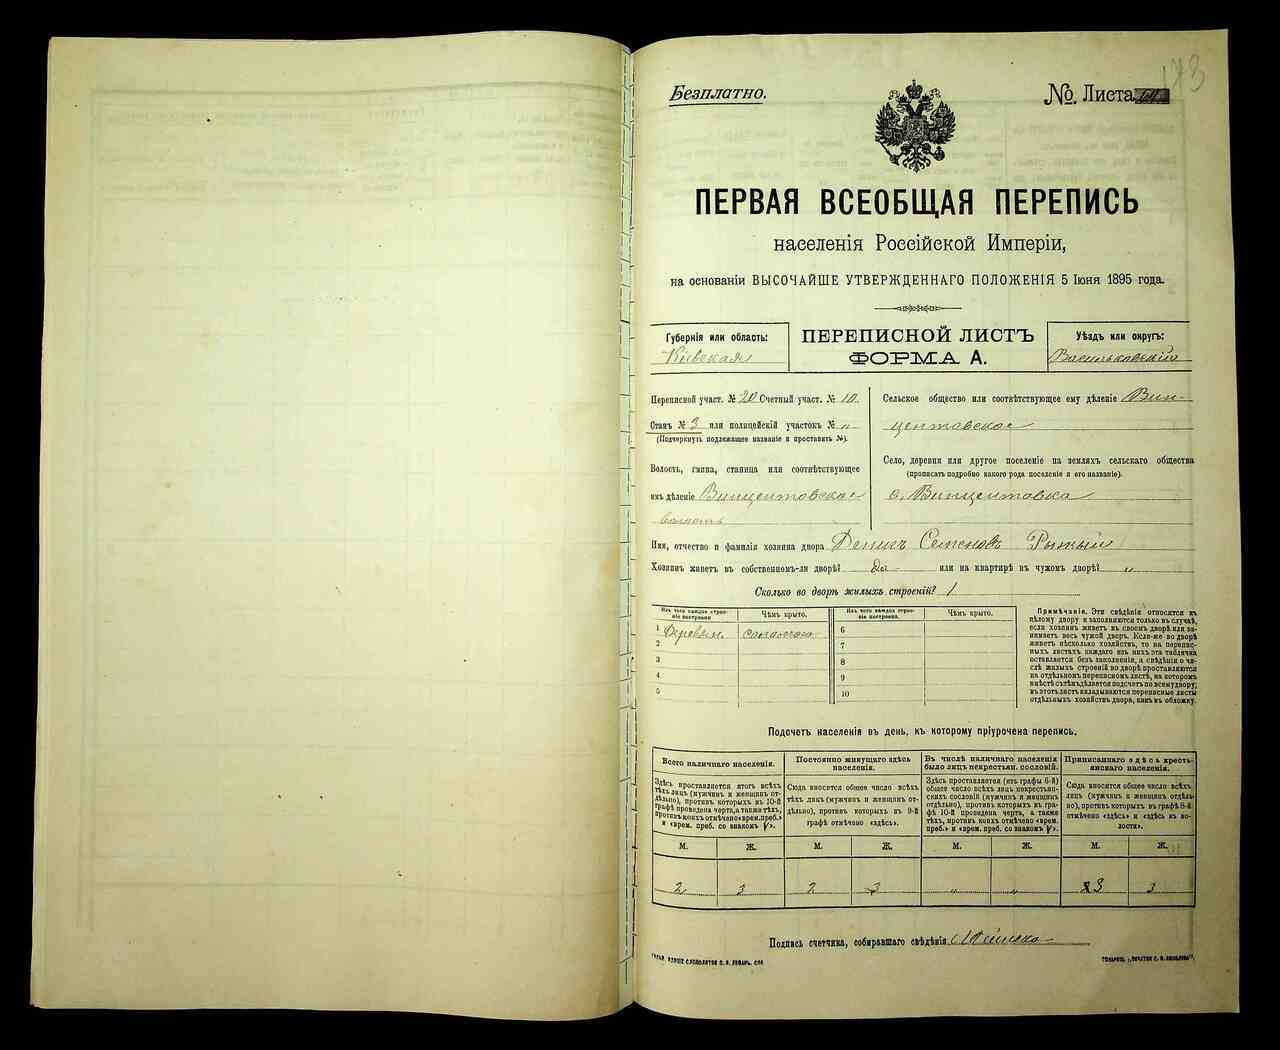 173
Безплатно.
№. Листа
ПЕРВАЯ ВСЕОБЩАЯ ПЕРЕПИСЬ
населенія Россійской Имперіи,
на основаніи ВЫСОЧАЙШЕ УТВЕРЖДЕННАГО ПОЛОЖЕНІЯ 5 Іюня 1895 года.
Губернія или область:
Кіевская
ПЕРЕПИСНОЙ ЛИСТЪ
ФОРМА А.
Уѣздъ или округъ:
Васильковскій
Переписной участ. № 20 Счетный участ. № 10.
Станъ № 3 или полицейскій участокъ № „
(Подчеркнуть подлежащее названіе и проставить №).
Волость, гмина, станица или соотвѣтствующее
имъ дѣленіе Винцентовская
волость
Сельское общество или соотвѣтствующее ему дѣленіе Вин-
центовское
Село, деревня или другое поселеніе на земляхъ сельскаго общества
(прописать подробно какого рода поселеніе и его названіе).
с. Винцентовка
Имя, отчество и фамилія хозяина двора Денисъ Семеновъ Рыжый
Хозяинъ живетъ въ собственномъ-ли дворѣ? Да или на квартирѣ въ чужомъ дворѣ? „
Сколько во дворѣ жилыхъ строеній? 1
Изъ чего каждое строе-
ніе построено
Чѣмъ крыто.
Изъ чего каждое строе-
ніе построено.
Чѣмъ крыто.
1 Деревян. соломою 6
2 7
3 8
4 9
5 10
Примѣчаніе. Эти свѣдѣнія относятся къ
цѣлому двору и заполняются только въ случаѣ,
если хозяинъ живетъ въ своемъ дворѣ или за-
нимаетъ весь чужой дворъ. Если-же во дворѣ
живетъ нѣсколько хозяйствъ, то на перепис-
ныхъ листахъ каждаго изъ нихъ эта табличка
оставляется безъ заполненія, а свѣдѣнія о чи-
слѣ жилыхъ строеній во дворѣ проставляются
на отдѣльномъ переписномъ листѣ, на которомъ
вмѣстѣ съ тѣмъ дѣлается подсчетъ по всему двору;
въ этотъ листъ вкладываются переписные листы
отдѣльныхъ хозяйствъ двора, какъ въ обложку.
Подсчетъ населенія въ день, къ которому пріурочена перепись.
Всего наличнаго населенія.
Здѣсь проставляется итогъ всѣхъ
тѣхъ лицъ (мужчинъ и женщинъ от-
дѣльно), противъ которыхъ въ 10-й
графѣ проведена черта, а также тѣхъ,
противъ коихъ отмѣчено «врем. преб.»
и «врем. преб. со знакомъ V».
Постоянно живущаго здѣсь
населенія.
Сюда вносится общее число всѣхъ
тѣхъ лицъ (мужчинъ и женщинъ от-
дѣльно), противъ которыхъ въ 9-й
графѣ отмѣчено «здѣсь».
Въ числѣ наличнаго населенія
было лицъ некрестьян. сословій.
Здѣсь проставляется (изъ графы 6-й)
общее число всѣхъ лицъ некрестьян-
скихъ сословій (мужчинъ и женщинъ
отдѣльно), противъ которыхъ въ гра-
фѣ 10-й проведена черта, а также
тѣхъ, противъ коихъ отмѣчено «врем.
преб.» и «врем. преб. со знакомъ V».
Приписаннаго здѣсь кресть-
янскаго населенія.
Сюда вносится общее число всѣхъ
лицъ (мужчинъ и женщинъ отдѣль-
но), противъ которыхъ въ графѣ 8-й
отмѣчено «здѣсь» и «здѣсь въ во-
лости».
М. Ж. М. Ж. М. Ж. М. Ж.
2 3 2 3 „ „ 3 3
Подпись счетчика, собиравшаго свѣдѣнія